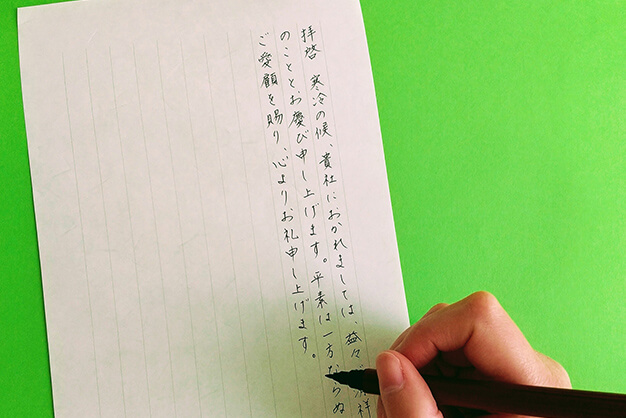 拝啓 寒冷の候、貴社におかれましては、益々
のこととお慶び申し上げます。平素は一方ならぬ
ご愛顧を賜り、心よりお礼申し上げます。